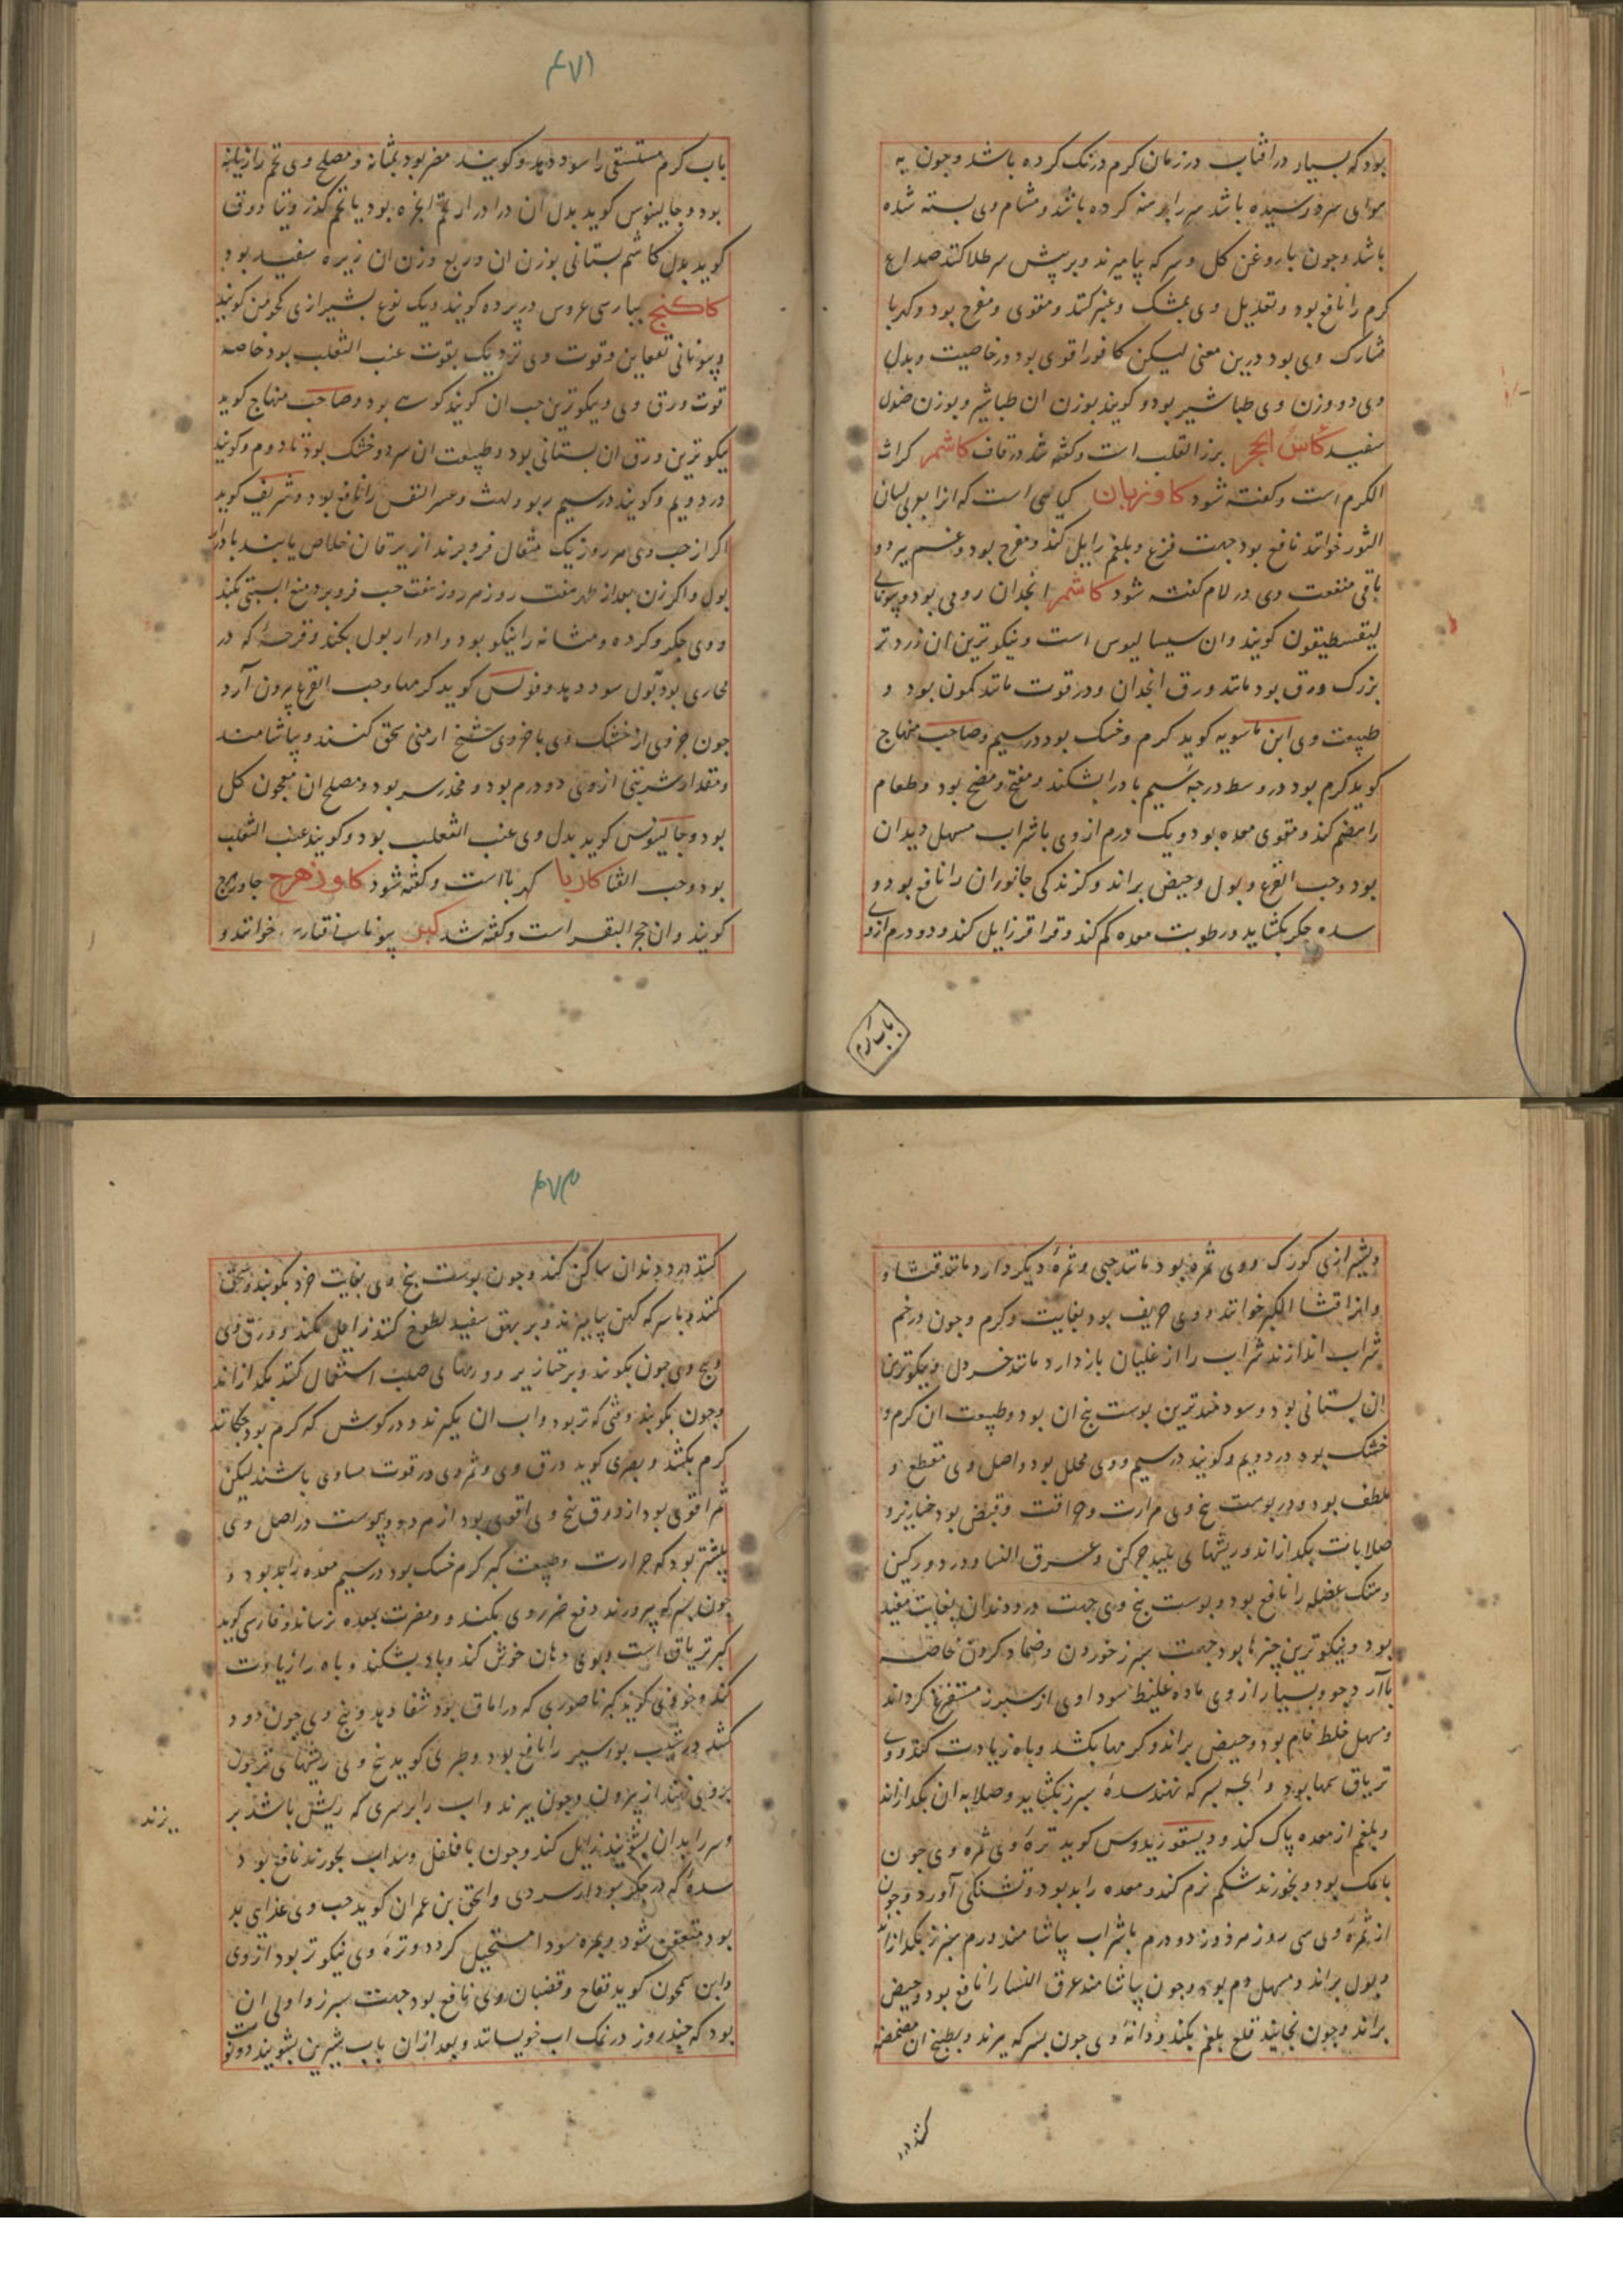 بود که بسیار در افتاب در زمان کرم درنک کرده باشد و چون به
هوای سرد رسیده باشد سر را برهنه کرده باشد و مشام وی بسته شده
باشد و چون با روغن کل و سرکه بیامیزند و بر پیش سر طلا کنند صداع
کرم را نافع بود و تعدیل وی بمشک و عنبر کنند و مقوی و مفرح بود و کهربا
مشارک وی بود درین معنی لیکن کافور اقوی بود در خاصیت و بدل
وی دو وزن وی طباشیر بود و کویند بوزن ان طباشیر و بوزن صندل
سفید کاس الحجر برز القلب است و کفته شد در قاف کاشمر کراث
الکرم است و کفته شود کاوزبان کیاهی است که انرا بعربی لسان
الثور خوانند نافع بود جهت فزع و بلغم زایل کند و مفرح بود و غم ببرد و
باقی منفعت وی در لام کفته شود کاشم انجدان رومی بود و بیونانی
لیغسطیقون کویند و ان سیسالیوس است و نیکوترین ان زردتر
بزرک ورق بود مانند ورق انجدان و در قوت مانند کمون بود و
طبیعت وی ابن ماسویه کوید کرم و خشک بود در سیم و صاحب منهاج
کوید کرم بود در وسط درجه سیم بادرا بشکند و مفتح و منضج بود و طعام
را هضم کند و مقوی معده بود و یک درم از وی با شراب مسهل دیدان
بود و حب القرع و بول و حیض براند و کزندکی جانوران را نافع بود و
سده جکر بکشاید و رطوبت معده کم کند و قراقر زایل کند و دو درم ازو
باب کرم
۴۷۱
باب کرم مستسقی را سود دهد و کویند مضر بود بمثانه و مصلح وی تخم رازیانه
بود و جالینوس کوید بدل ان در ادرار تخم انجره بود یا تخم کزر و
کوید بدل کاشم بستانی بوزن ان و ربع وزن ان زیره سفید بود
کاکنج بپارسی عروس در پرده کویند و یک نوع بشیرازی کچومن کویند
و بیونانی و قوت وی نزدیک بقوت عنب الثعلب بود خاصه
قوت ورق وی و نیکوترین حب ان کویند کوهی بود و صاحب منهاج کوید
نیکوترین ورق ان بستانی بود و طبیعت ان سرد و خشک بود تا دوم و کویند
در دویم و کویند در سیم ربو و لهث و عسر النفس را نافع بود و شریف کوید
اکر از حب وی هر روز یک مثقال فرو برند از یرقان خلاص یابند بادرار
بول و اکر زن بعد از طهر هفت روز هر روز هفت حب فرو برد منع ابستنی بکند
و وی جکر و کرده و مثانه را نیکو بود و ادرار بول بکند و قرحه که در
مجاری بود بول سود دهد و فولس کوید کرمها و حب القرع بیرون آرد
چون جزوی از خشک وی با جزوی شیخ ارمنی سحق کنند و بیاشامند
و مقدار شربتی از وی دو درم بود و مخدر سر بود و مصلح ان معجون کل
بود و جالینوس کوید بدل وی عنب الثعلب بود و کویند عنب الثعلب
بود و حب القنا کاربا کهربا است و کفته شود کاوزهرج جاوزهرج
کویند و ان حجر البقر است و کفته شد کبر بیونانی قفارس خوانند و
و بشیرازی کورک و وی ثمره بود مانند حبی و ثمره دیکر دارد مانند قثا و
و انرا قثا الکبر خوانند و وی حریف بود بغایت و کرم و چون در خم
شراب اندازند شراب را از غلیان باز دارد مانند خردل و نیکوترین
ان بستانی بود و سودمندترین پوست بیخ ان بود و طبیعت ان کرم و
خشک بود در دویم و کویند در سیم و وی محلل بود و اصل وی مقطع و
ملطف بود و در پوست بیخ وی مرارت و حرافت و قبض بود خنازیر و
صلابات بکدازاند و ریشهای پلید چرکن و عرق النسا و درد ورکین
و هتک عضله را نافع بود و پوست بیخ وی جهت درد دندان بغایت مفید
بود و نیکوترین چیزها بود جهت سپرز خوردن و ضماد کردن خاصه
با آرد جو و بسیار از وی ماده غلیظ سوداوی از سپرز مستفرغ کرداند
و مسهل خلط خام بود و حیض براند و کرمها بکشد و باه زیادت کند و وی
تریاق سمها بود و انچه بسرکه نهند سده سپرز بکشاید و صلابه ان بکدازاند
و بلغم از معده پاک کند و دیسقوریدوس کوید تره وی ثمره وی چون
بانمک بود و بخورند شکم نرم کند و معده را بد بود و تشنکی آورد و چون
از ثمره وی سی روز هر روز دو درم باشراب بیاشامند ورم سپرز بکدازاند
و بول براند و مسهل دم بود و چون بیاشامند عرق النسا را نافع بود و حیض
براند و چون بخایند قلع بلغم بکند و دانه وی چون بسرکه بپزند و بطبیخ ان مضمضه
کنند درد
۴۷۳
کنند درد دندان ساکن کند و چون پوست بیخ وی بغایت خرد بکوبند و سحق
کنند و با سرکه کهن بیامیزند و بر بهق سفید لطوخ کنند زایل کند و ورق وی
و بیخ وی چون بکوبند و بر خنازیر و ورمهای صلب استعمال کنند بکدازاند
و چون بکوبند وقتی که تر بود و اب ان بکیرند و در کوش که کرم بود بچکانند
کرم بکشد و بصری کوید ورق وی و ثمر وی در قوت مساوی باشند لیکن
ثمر اقوی بود از ورق و بیخ وی اقوی بود از هر دو و یبوست در اصل وی
بیشتر بود که حرارت و طبیعت کبر کرم خشک بود در سیم معده را بد بود و
چون بسرکه بپرورند دفع ضرر وی بکنند و مضرت بمعده نرساند و فارسی کوید
کبر تریاق است و بوی دهان خوش کند و باد بشکند و باه را زیادت
کند و خوزی کوید کبر ناصوری که در اماق بود شفا دهد و بیخ وی چون دود
کنند در شیب بواسیر را نافع بود و طبری کوید بیخ وی ریشهای تر چون
بروی نهند از بیرون و چون بپزند و اب را بر سری که ریش باشد بر
بزند
و سر را بدان بشویند زایل کند و چون با فلفل و سداب بخورند نافع بود
سده که در جکر بود از سردی و اسحق بن عمران کوید حب وی غذای بد
بود متعفن شود و بمره سودا مستحیل کردد و تره وی نیکوتر بود از وی
و ابن سمجون کوید فقاح و قضبان وی نافع بود جهت سپرز و اولی ان
بود که چند روز در نمک اب خویسانند و بعد از ان باب شیرین بشویند دو نوبت